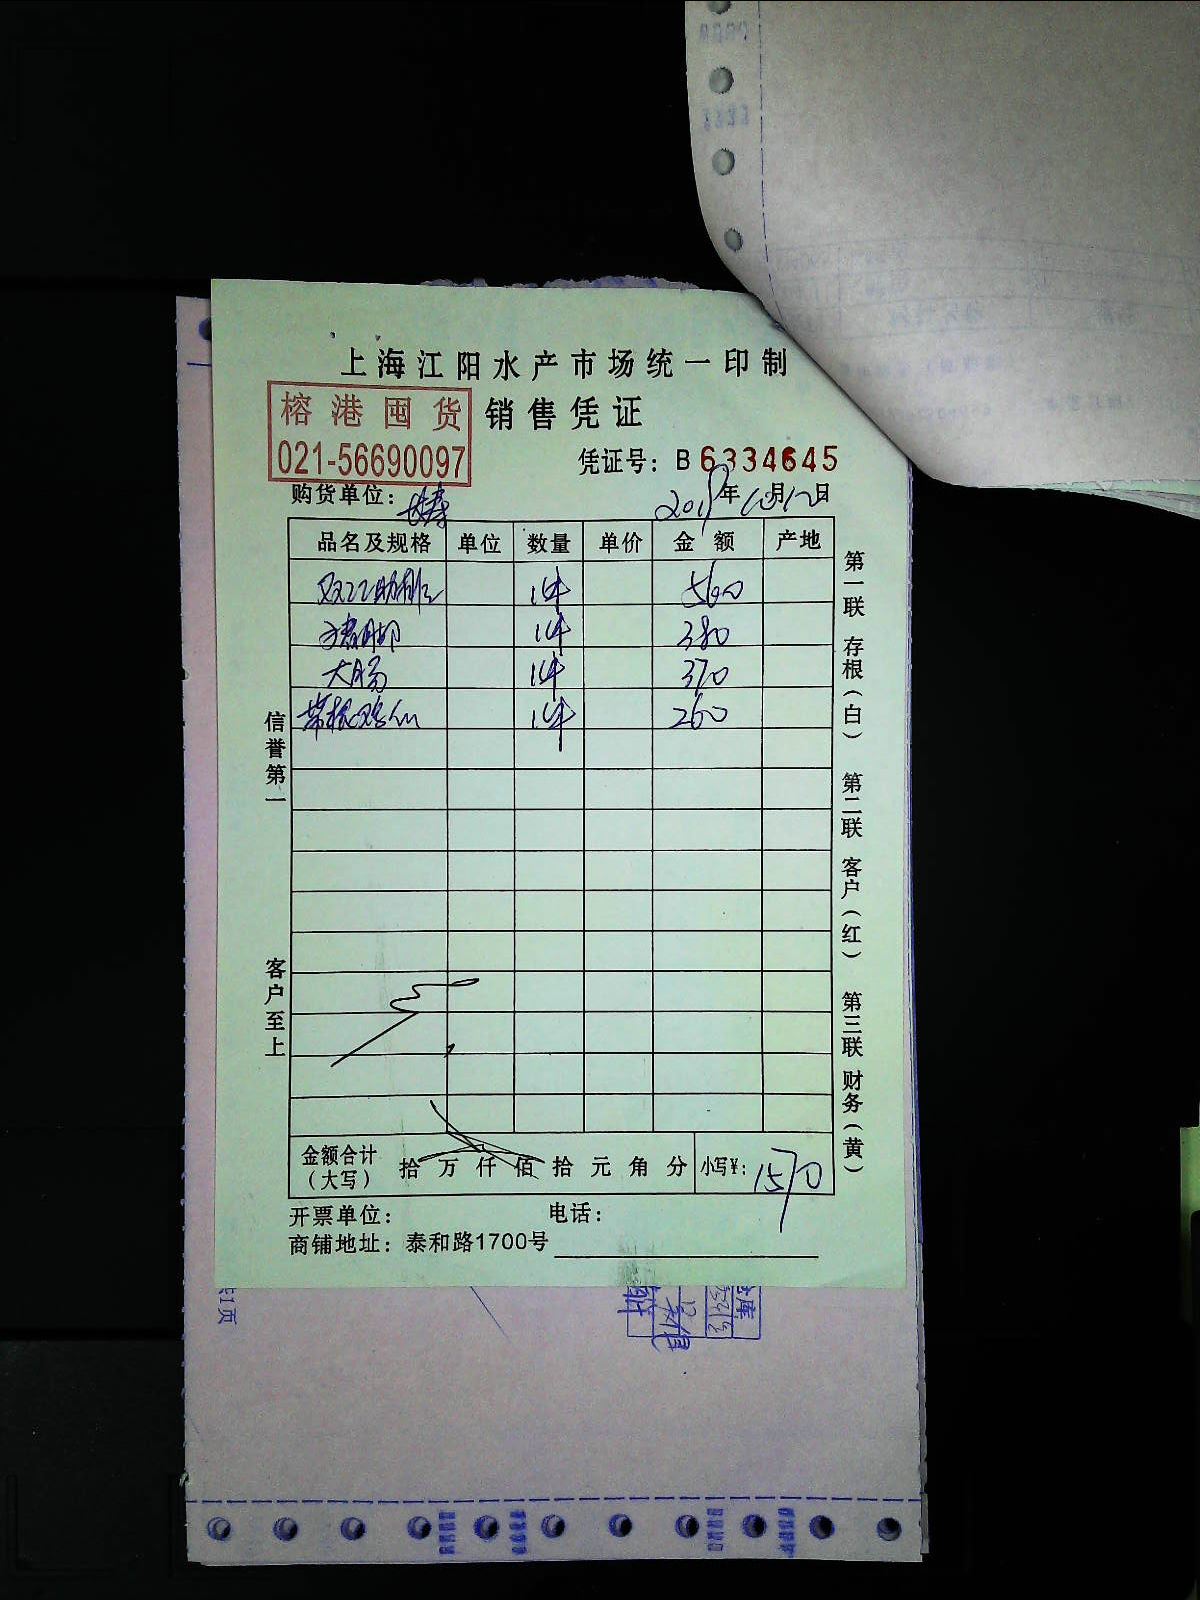 上海江阳水产市场统一印制
榕港囤货 销售凭证
021-56690097
凭证号: B 6334645
购货单位: 年10月12日
品名及规格 单位 数量 单价 金额 产地
1件 560
猪脚 1件 380
大肠 1件 370
1件 260
信誉第一 客户至上
第一联 存根(白) 第二联 客户(红) 第三联 财务(黄)
金额合计(大写) 拾 万 仟 佰 拾 元 角 分 小写¥: 1570
开票单位: 电话:
商铺地址: 泰和路1700号